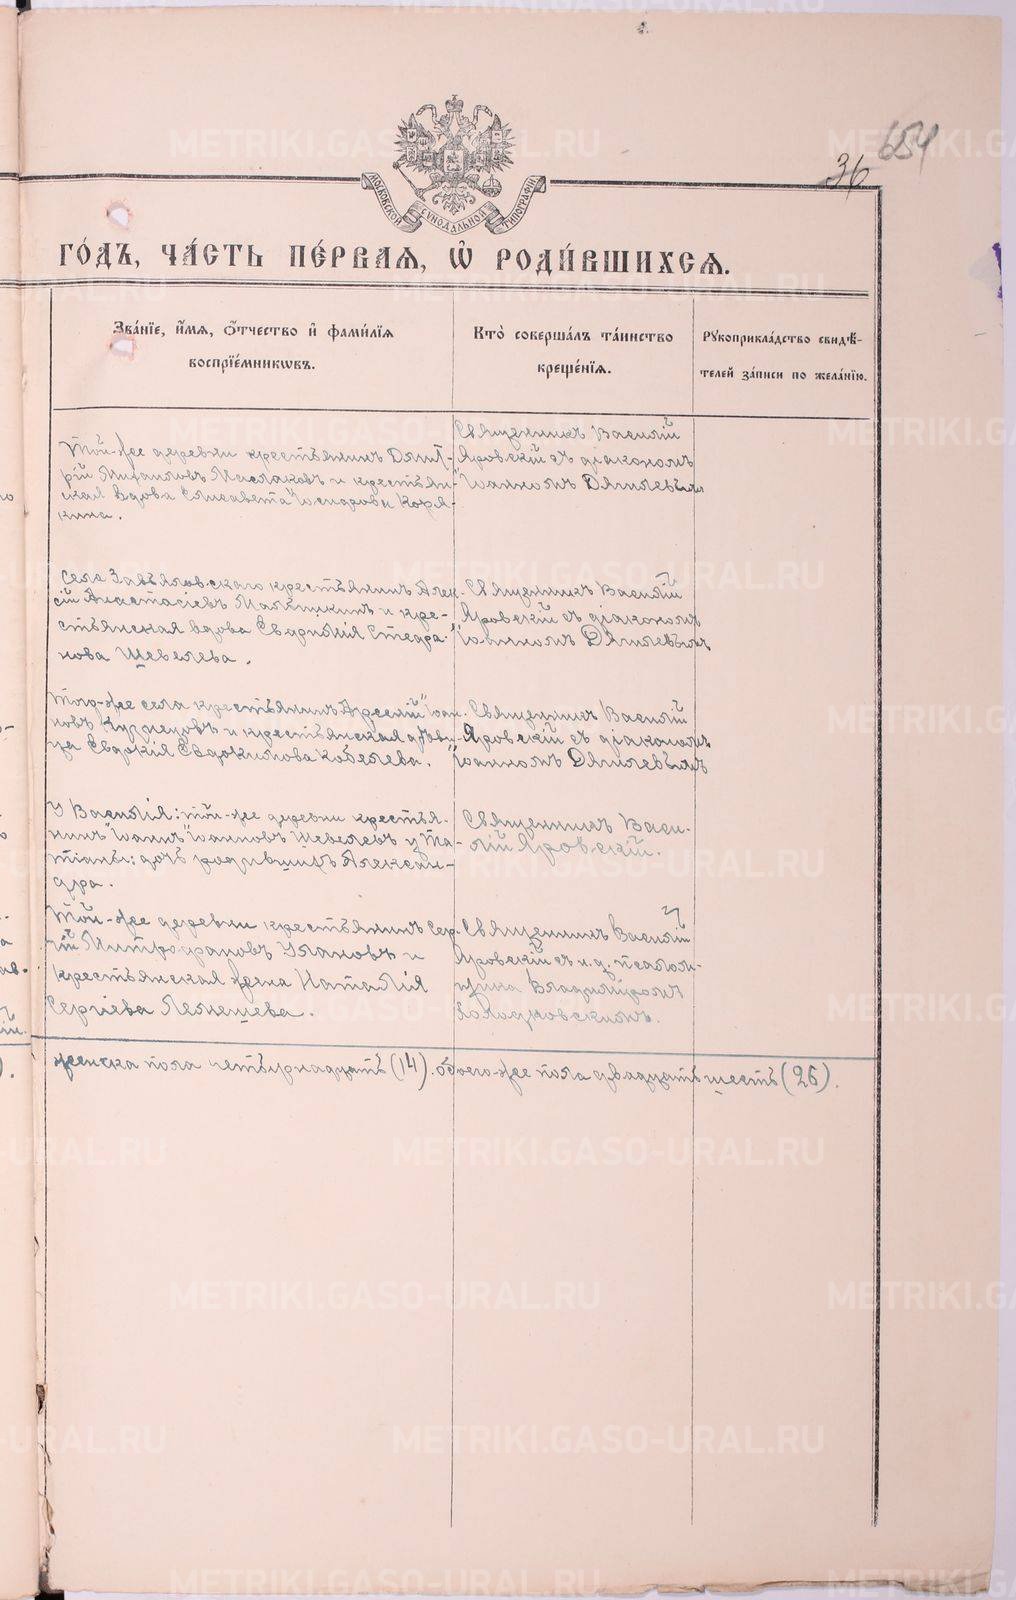 654
36
МОСКОВСКОЙ СѴНОДАЛЬНОЙ ТИПОГРАФІИ
ГО́ДЪ, ЧА́СТЬ ПЕ́РВАЯ, Ѡ҆ РОДИ́ВШИХСЯ.
Зва́нїе, и҆́мя, о҆́тчество и҆ фами́лїя
воспрїе́мникѡвъ.
Кто̀ соверша́лъ та́инство
креще́нїя.
Рꙋкоприкла́дство свидѣ́-
телей за́писи по жела́нїю.
Той-же деревни крестьянинъ Дмит-
рій Михаиловъ Маслаковъ и крестьян-
ская вдова Елисавета Коря-
кина.
Священникъ Василій
Яровскій съ діакономъ
Іоанномъ Дягилевымъ
Села Завьяловскаго крестьянинъ Алек-
сій Анастасіевъ и кре-
стьянская вдова Евфимія Стефа-
нова Шевелева.
Священникъ Василій
Яровскій съ діакономъ
Іоанномъ Дягилевымъ
Того-же села крестьянинъ Арсеній Іоан-
новъ Кузнецовъ и крестьянская дѣви-
ца Евдокимова Кобелева.
Священникъ Василій
Яровскій съ діакономъ
Іоанномъ Дягилевымъ
У Василія: той-же деревни крестья-
нинъ Іоаннъ Іоанновъ Шевелевъ у Та-
тіаны: дочь родившихъ Алексан-
дра.
Священникъ Васи-
лій Яровскій.
Той-же деревни крестьянинъ Сер-
гій Митрофановъ Улановъ и
крестьянская жена Наталія
Сергіева Лемешева.
Священникъ Василій
Яровскій съ и. д. псалом-
щика Владиміромъ
женска пола четырнадцать (14). обоего-же пола двадцать шесть (26).
METRIKI.GASO-URAL.RU